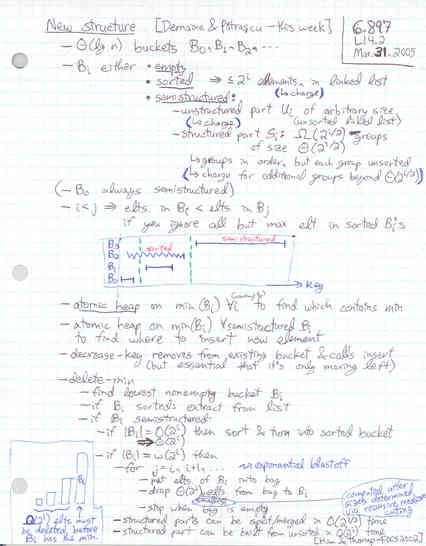 New structure [Demaine & Pătraşcu – this week]
6.897
L14.2
Mar. 31, 2005
– Θ(lg n) buckets B₀, B₁, B₂, ⋯
– Bᵢ either • empty
• sorted ⇒ ≤ 2ⁱ elements, in linked list
(↳ charge)
• semistructured:
– unstructured part Uᵢ of arbitrary size
(↳ charge) (unsorted linked list)
– structured part Sᵢ: Ω(2^{i/2}) groups
of size Θ(2^{i/2})
↳ groups in order, but each group unsorted
(↳ charge for additional groups beyond Θ(2^{i/2}))
(– B₀ always semistructured)
– i<j ⇒ elts. in Bᵢ < elts in Bⱼ
if you ignore all but max elt in sorted Bᵢ's
B₃ semistructured
B₂ sorted
B₁
B₀
key
– atomic heap on min(Bᵢ) ∀i to find which contains min
– atomic heap on min(Bᵢ) ∀ semistructured Bᵢ
to find where to insert new element
– decrease-key removes from existing bucket & calls insert
(but essential that it's only moving left)
– delete-min
– find lowest nonempty bucket Bᵢ
– if Bᵢ sorted: extract from list
– if Bᵢ semistructured:
– if |Bᵢ| = O(2ⁱ) then sort & turn into sorted bucket
– if |Bᵢ| = ω(2ⁱ) then
– for j = i, i+1, ⋯ ~ exponential blastoff
– put elts. of Bⱼ into bag
– drop Θ(2ʲ) from bag to Bⱼ
– stop when bag is empty
– structured parts can be split/merged in O(2^{i/2}) time
– structured part can be built from unsorted in O(2ⁱ) time
[Han & Thorup – FOCS 2002]
computed after
sizes determined
via recursive median
cutting
Bᵢ
Ω(2ⁱ) elts must
be deleted before
Bᵢ has the min.